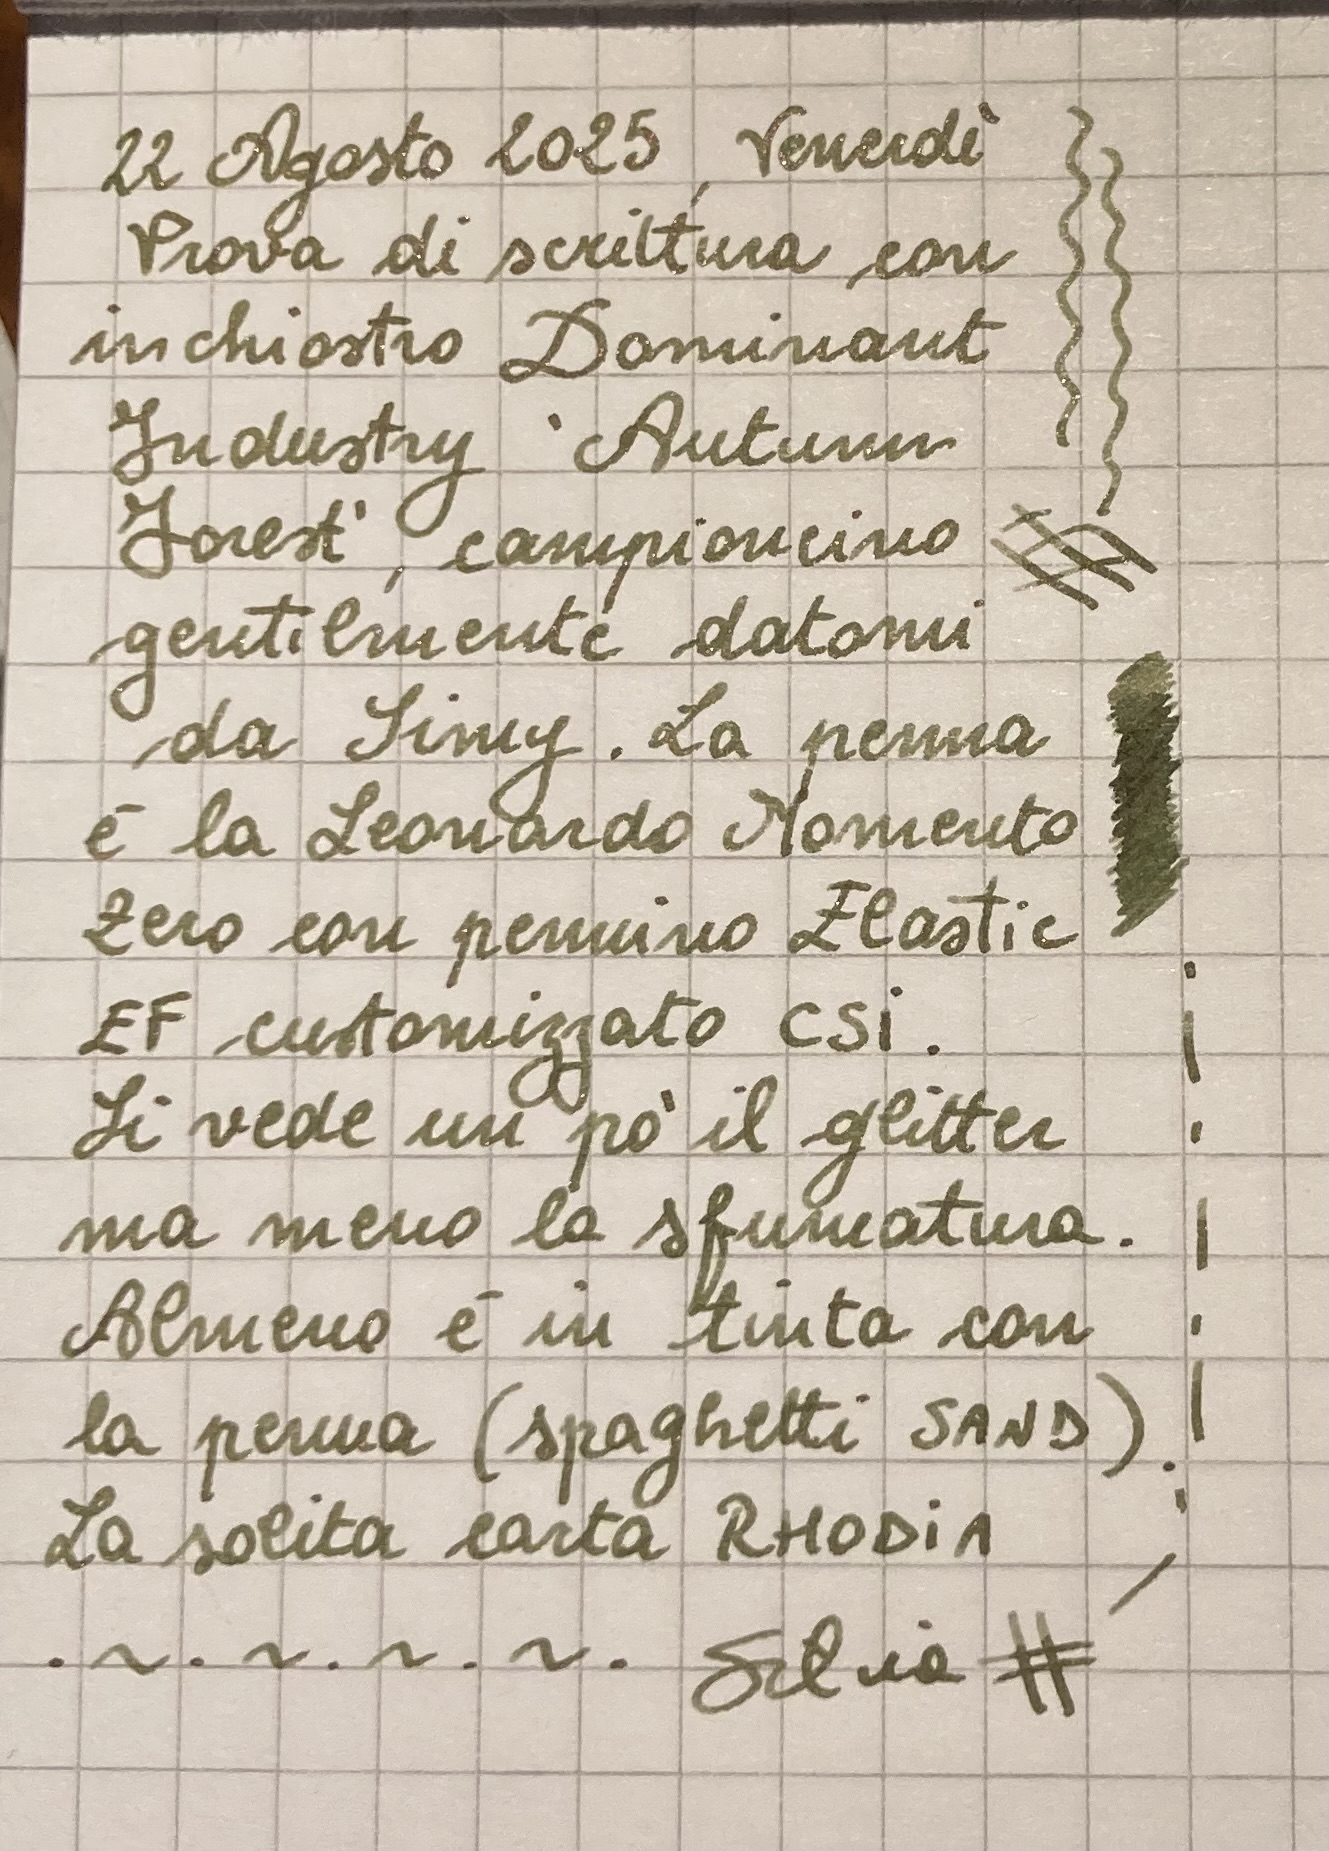 22 Agosto 2025, Venerdì
Prova di scrittura con
inchiostro Dominant
Industry 'Autumn
Forest', campioncino
gentilmente datomi
da Simy. La penna
è la Leonardo Momento
Zero con pennino Elastic
EF customizzato CSi.
Si vede un pò il glitter
ma meno la sfumatura.
Almeno è in tinta con
la penna (spaghetti SAND).
La solita carta RHODiA
.~.~.~.~. Silvia #